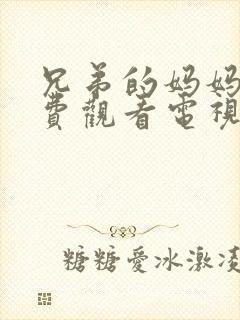 兄弟的妈妈
費觀看電視
糖糖愛冰激凌